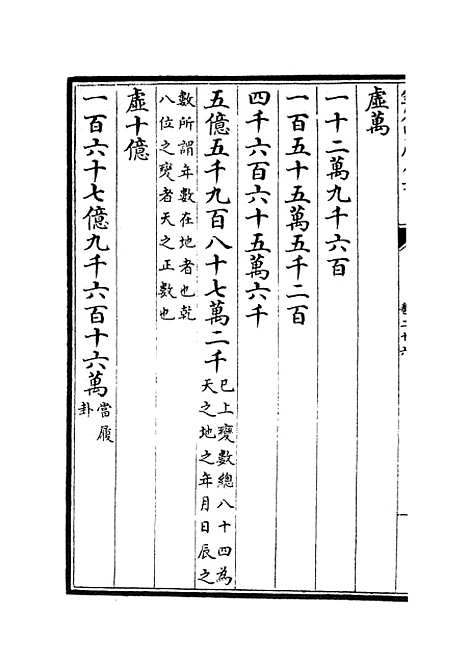 虛萬
一十二萬九千六百
一百五十五萬五千二百
四千六百六十五萬六千
五億五千九百八十七萬二千
已上變數總八十四為
天之地之年月日辰之
數所謂年數在地者也乾
八位之變者天之正數也
虛十億
一百六十七億九千六百十六萬
當履
卦
卷二十六